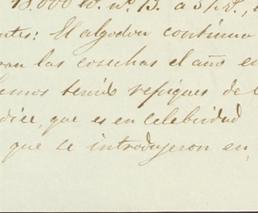 18.000 lb. nº 13. a 3 1/8.,
ntes: El algodon continua
ran las cosechas el año en
emos tenido repiques de
dice, que es en celebridad
que se introdujeron en